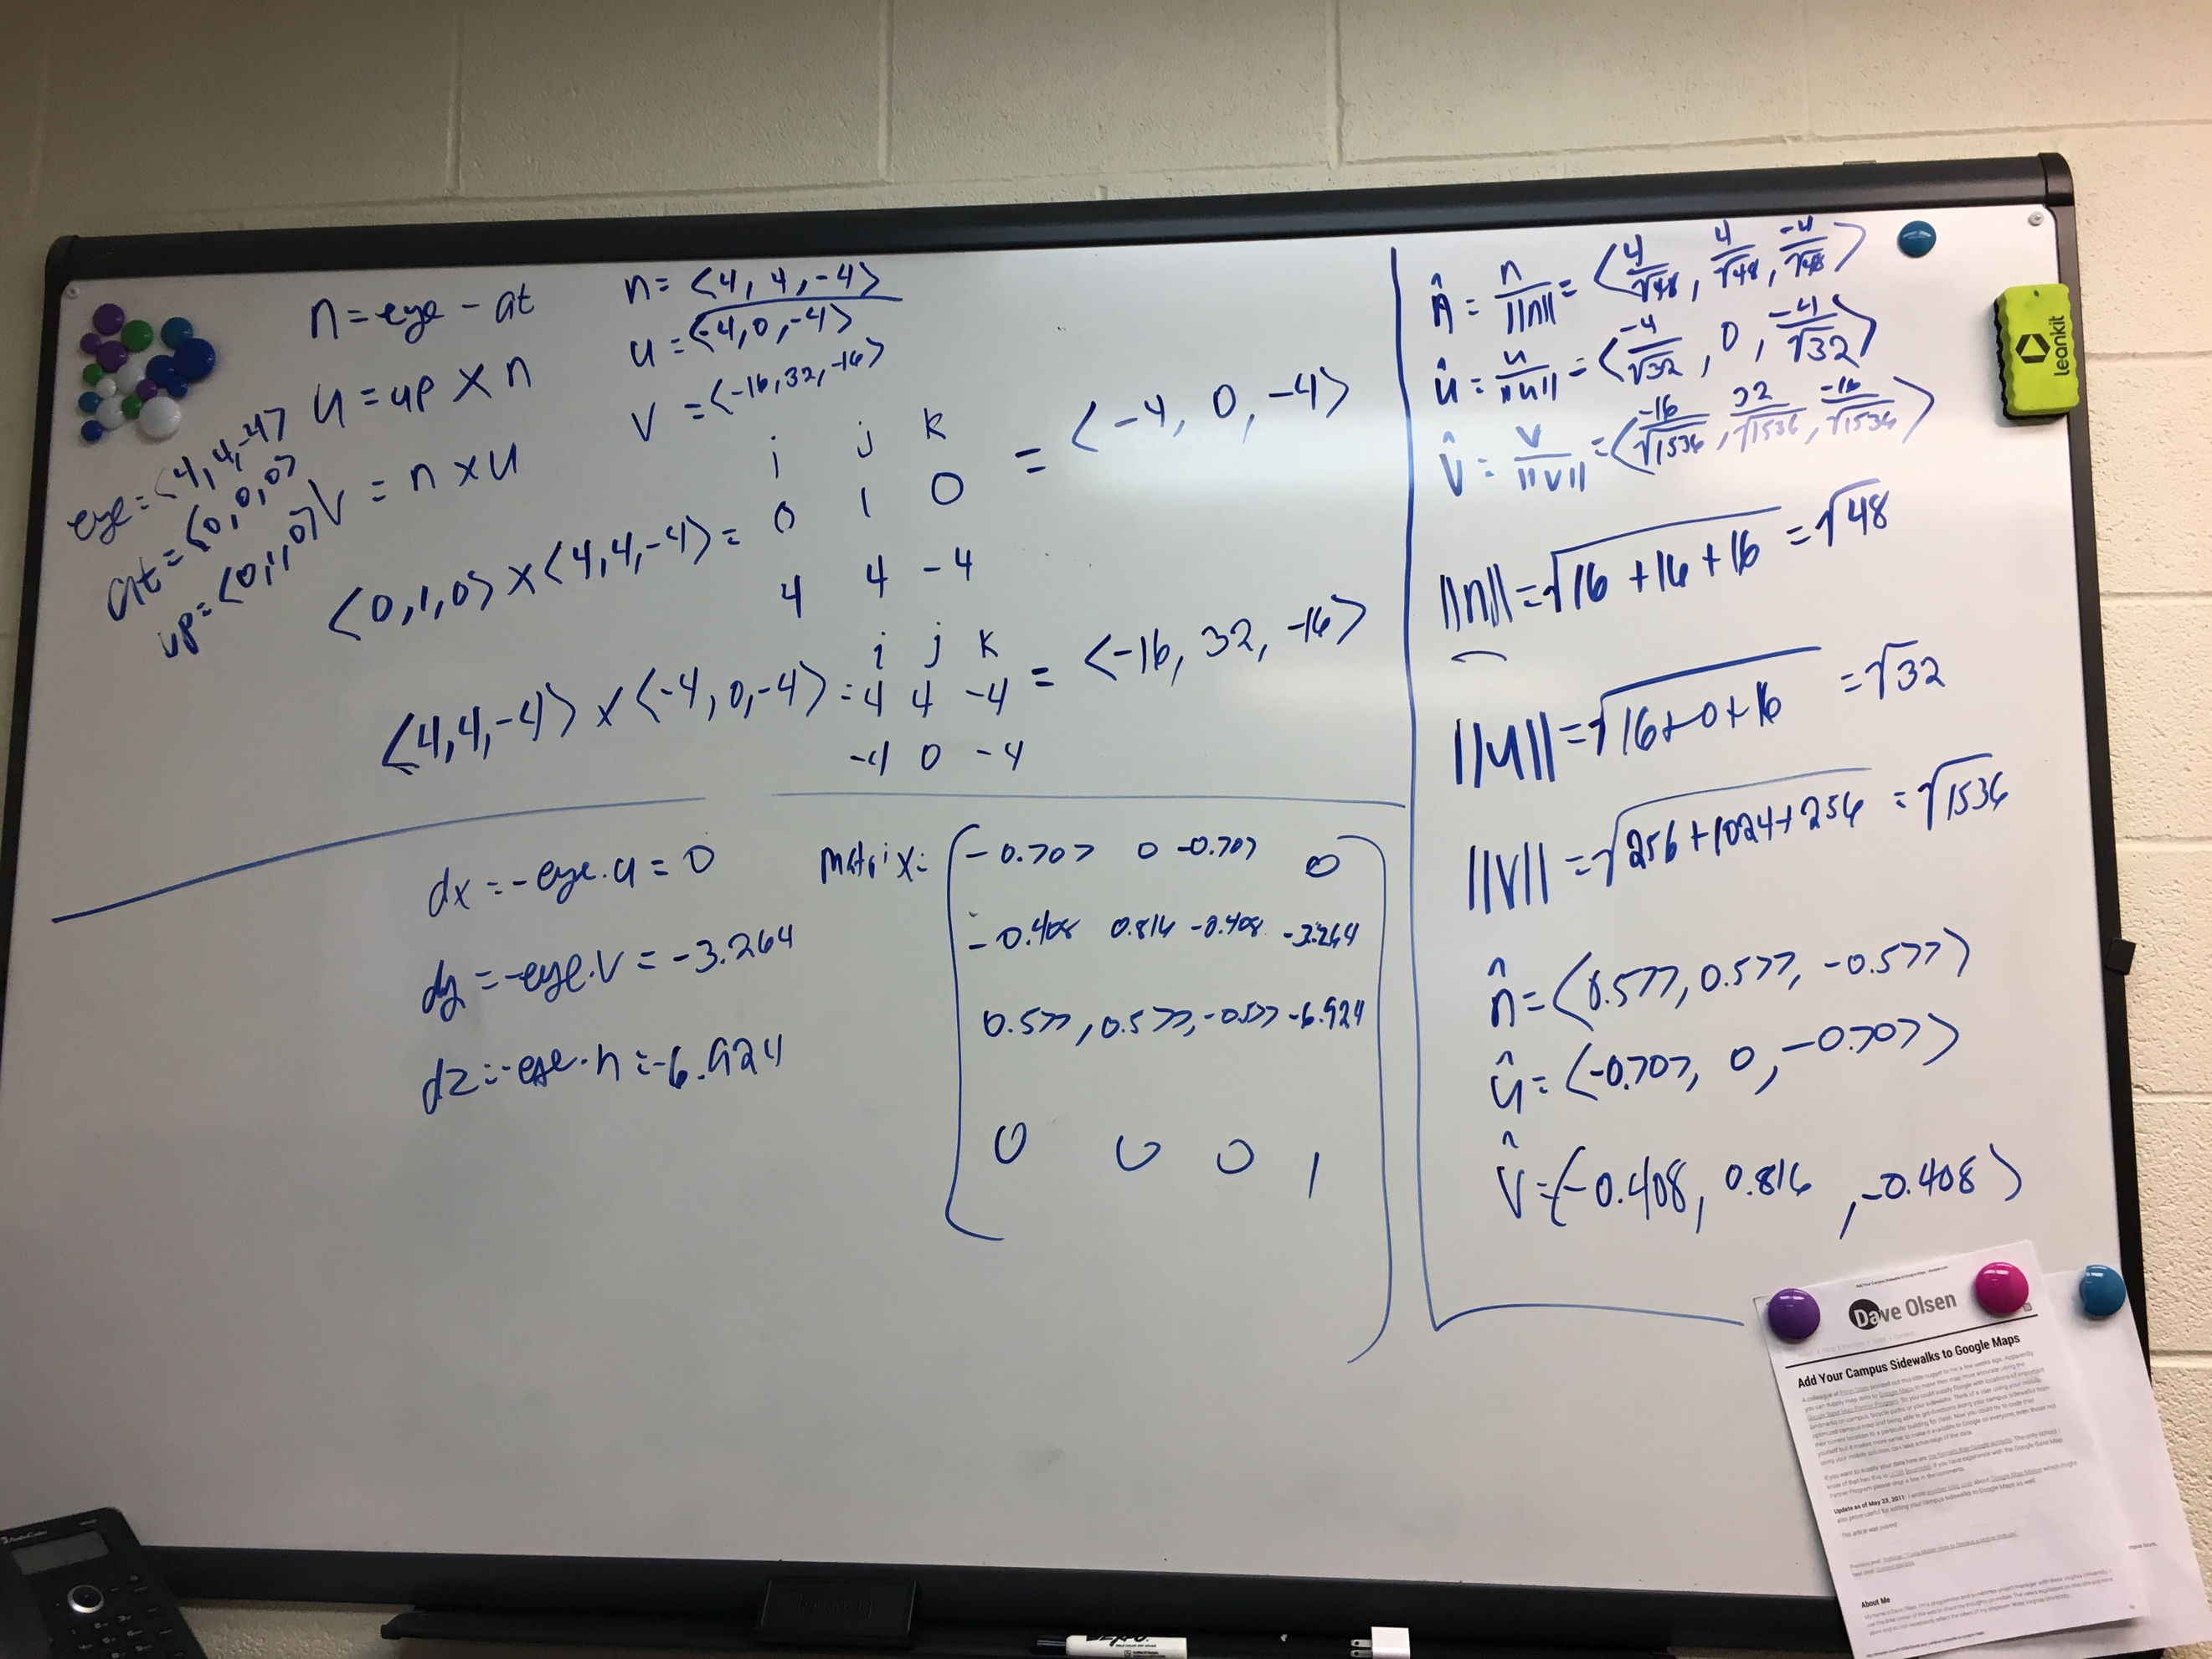 n = eye - at
u = up × n
v = n × u
eye = <4, 4, -4>
at = <0, 0, 0>
up = <0, 1, 0>
n = <4, 4, -4>
u = <-4, 0, -4>
v = <-16, 32, -16>
i j k
<0, 1, 0> × <4, 4, -4> = 0 1 0 = <-4, 0, -4>
4 4 -4
i j k
<4, 4, -4> × <-4, 0, -4> = 4 4 -4 = <-16, 32, -16>
-4 0 -4
dx = -eye · u = 0
dy = -eye · v = -3.264
dz = -eye · n = -6.924
Matrix =
-0.707 0 -0.707 0
-0.408 0.816 -0.408 -3.264
0.577, 0.577, -0.577 -6.924
0 0 0 1
n̂ = n/||n|| = <4/√48, 4/√48, -4/√48>
û = u/||u|| = <-4/√32, 0, -4/√32>
v̂ = v/||v|| = <-16/√1536, 32/√1536, -16/√1536>
||n|| = √16 + 16 + 16 = √48
||u|| = √16 + 0 + 16 = √32
||v|| = √256 + 1024 + 256 = √1536
n̂ = <0.577, 0.577, -0.577>
û = <-0.707, 0, -0.707>
v̂ = <-0.408, 0.816, -0.408>
leankit
Dave Olsen
Add Your Campus Sidewalks to Google Maps
Update as of May 23, 2011:
About Me